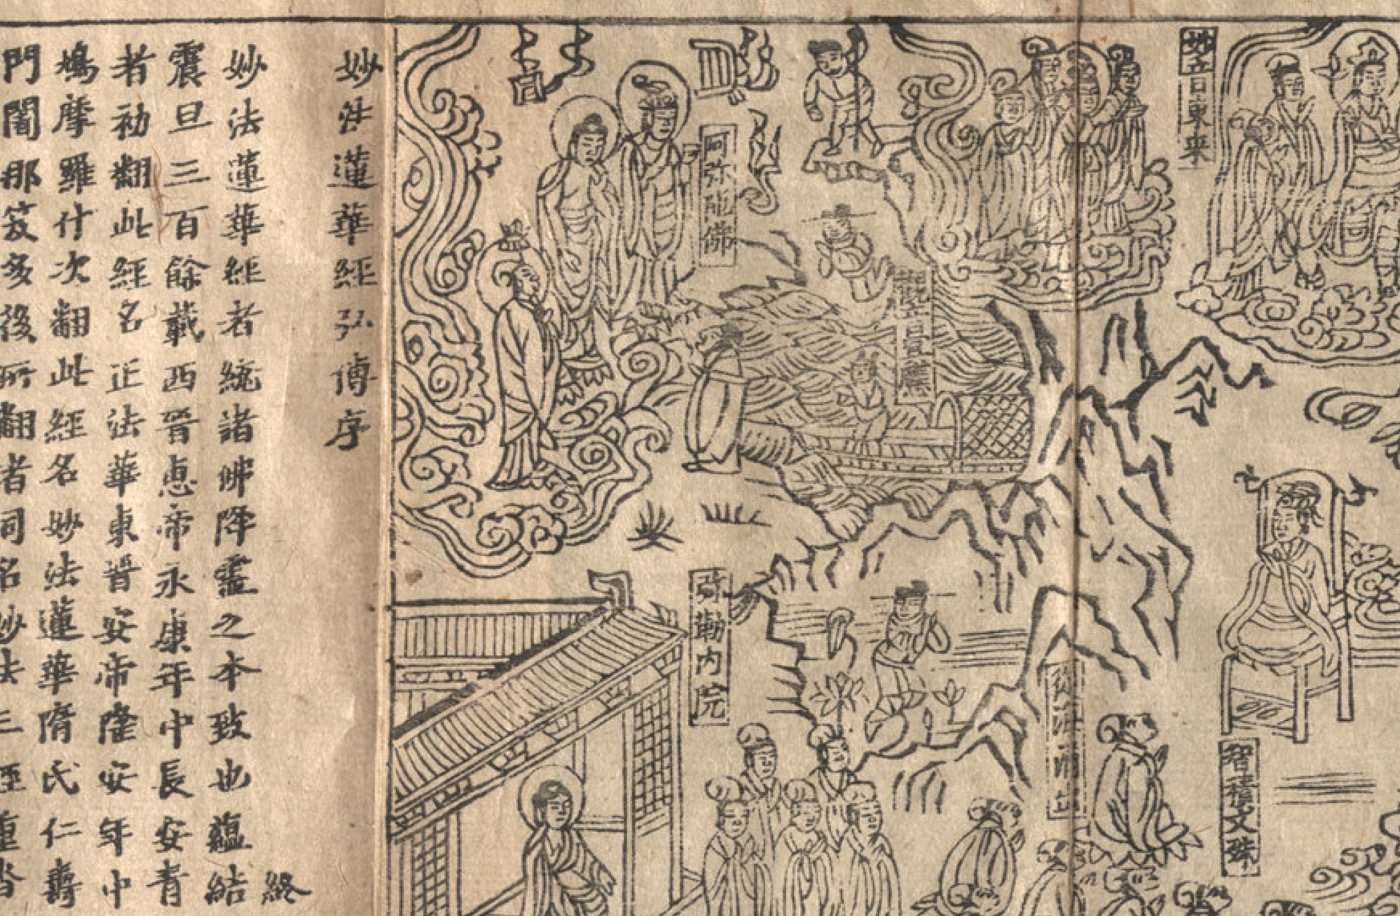 妙音東来
智積文殊
從地涌出
觀音𢈘
阿弥陁佛
弥勒内院
妙法蓮華經弘傳序
終
妙法蓮華經者統諸佛降靈之本致也蘊結
震旦三百餘載西晉惠帝永康年中長安青
者初翻此經名正法華東晉安帝隆安年中
鳩摩羅什次翻此經名妙法蓮華隋氏仁壽
門闍那笈多後所翻者同名妙法三經重沓